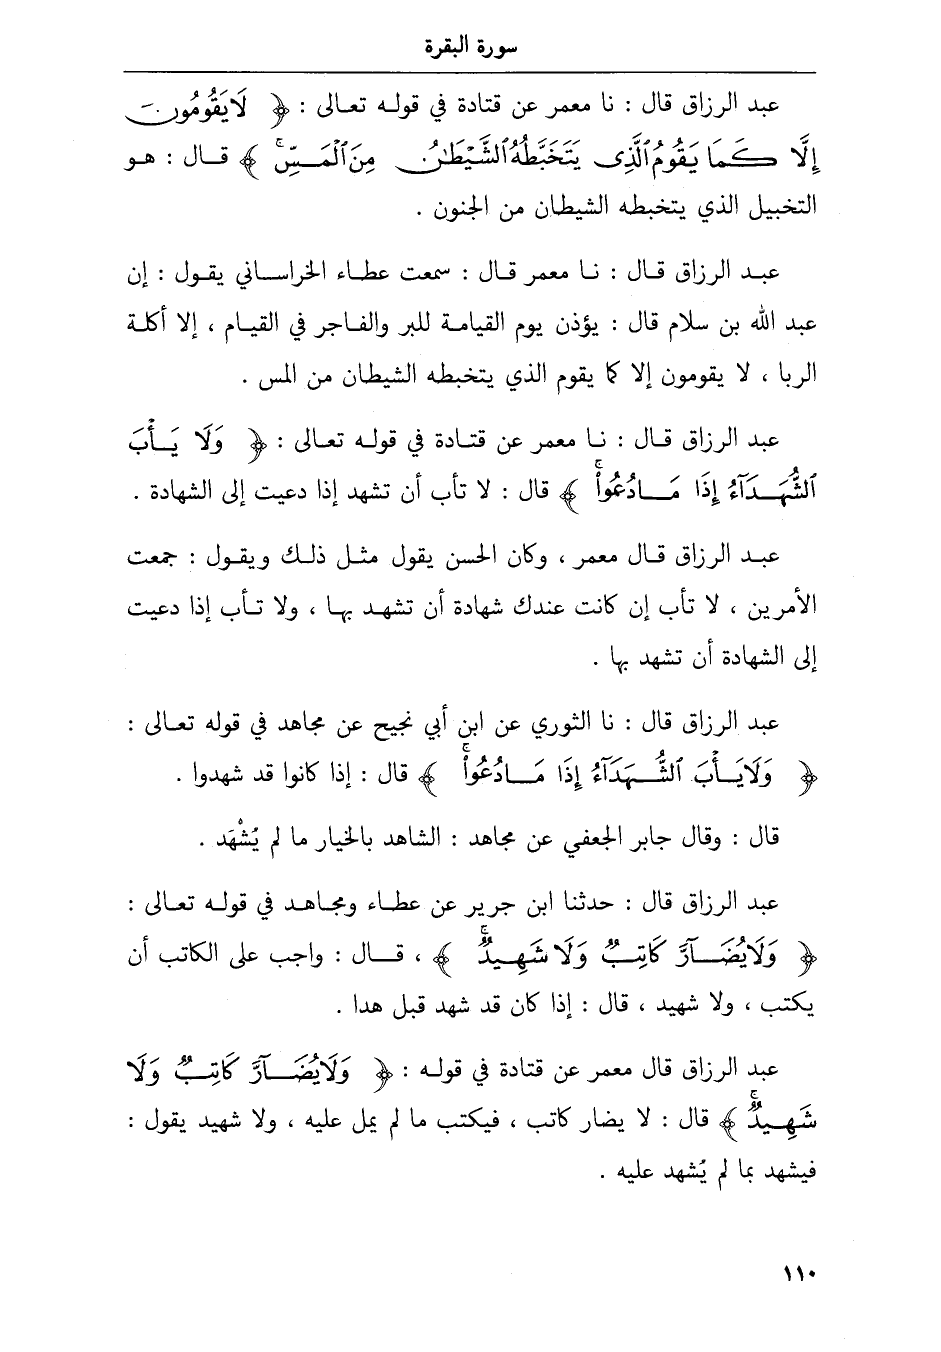 سورة البقرة
عبد الرزاق قال : نا معمر عن قتادة في قوله تعالى : ﴿ لَا يَقُومُونَ
إِلَّا كَمَا يَقُومُ ٱلَّذِى يَتَخَبَّطُهُ ٱلشَّيْطَٰنُ مِنَ ٱلْمَسِّ ۚ ﴾ قال : هو
التخبيل الذي يتخبطه الشيطان من الجنون .
عبد الرزاق قال : نا معمر قال : سمعت عطاء الخراساني يقول : إن
عبد الله بن سلام قال : يؤذن يوم القيامة للبر والفاجر في القيام ، إلا أكلة
الربا ، لا يقومون إلا كما يقوم الذي يتخبطه الشيطان من المس .
عبد الرزاق قال : نا معمر عن قتادة في قوله تعالى : ﴿ وَلَا يَأْبَ
ٱلشُّهَدَآءُ إِذَا مَا دُعُوا۟ ۚ ﴾ قال : لا تأب أن تشهد إذا دعيت إلى الشهادة .
عبد الرزاق قال معمر ، وكان الحسن يقول مثل ذلك ويقول : جمعت
الأمرين ، لا تأب إن كانت عندك شهادة أن تشهد بها ، ولا تأب إذا دعيت
إلى الشهادة أن تشهد بها .
عبد الرزاق قال : نا الثوري عن ابن أبي نجيح عن مجاهد في قوله تعالى :
﴿ وَلَا يَأْبَ ٱلشُّهَدَآءُ إِذَا مَا دُعُوا۟ ۚ ﴾ قال : إذا كانوا قد شهدوا .
قال : وقال جابر الجعفي عن مجاهد : الشاهد بالخيار ما لم يُشْهَد .
عبد الرزاق قال : حدثنا ابن جرير عن عطاء ومجاهد في قوله تعالى :
﴿ وَلَا يُضَآرَّ كَاتِبٌ وَلَا شَهِيدٌ ۚ ﴾ ، قال : واجب على الكاتب أن
يكتب ، ولا شهيد ، قال : إذا كان قد شهد قبل هدا .
عبد الرزاق قال معمر عن قتادة في قوله : ﴿ وَلَا يُضَآرَّ كَاتِبٌ وَلَا
شَهِيدٌ ۚ ﴾ قال : لا يضار كاتب ، فيكتب ما لم يمل عليه ، ولا شهيد يقول :
فيشهد بما لم يُشهد عليه .
١١٠